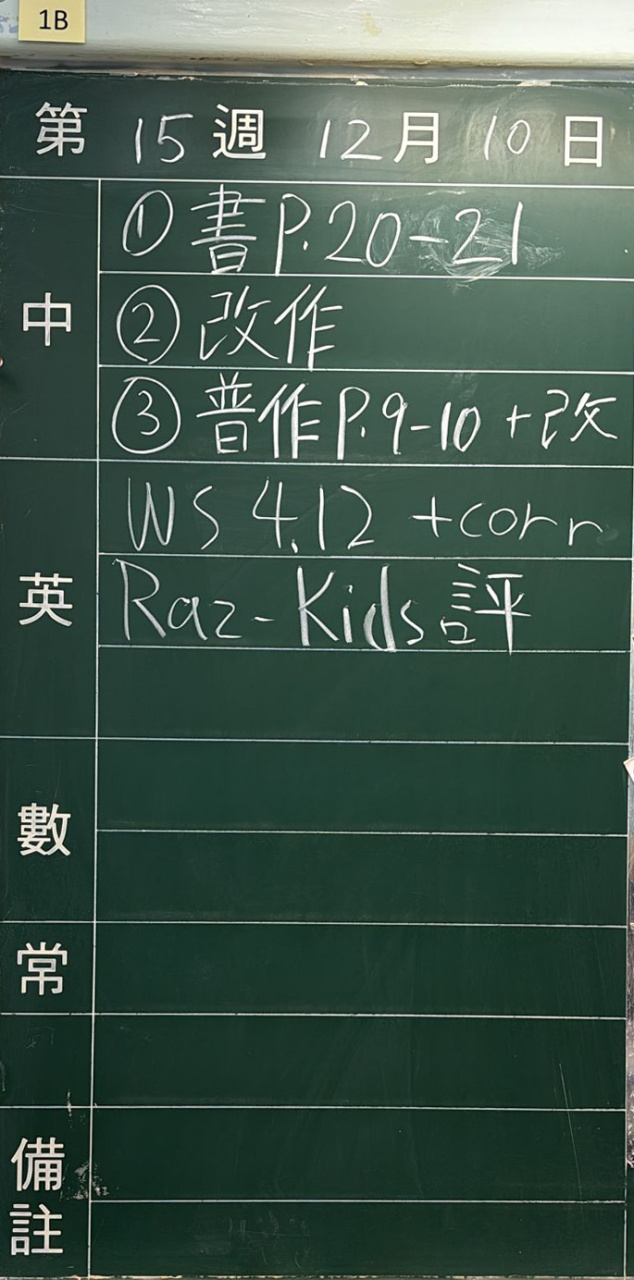 1B
第 15 週 12 月 10 日
中
① 書 P.20-21
② 改作
③ 普作 P.9-10 + 改
英
WS 4.12 +corr
Raz-Kids 評
數
常
備註